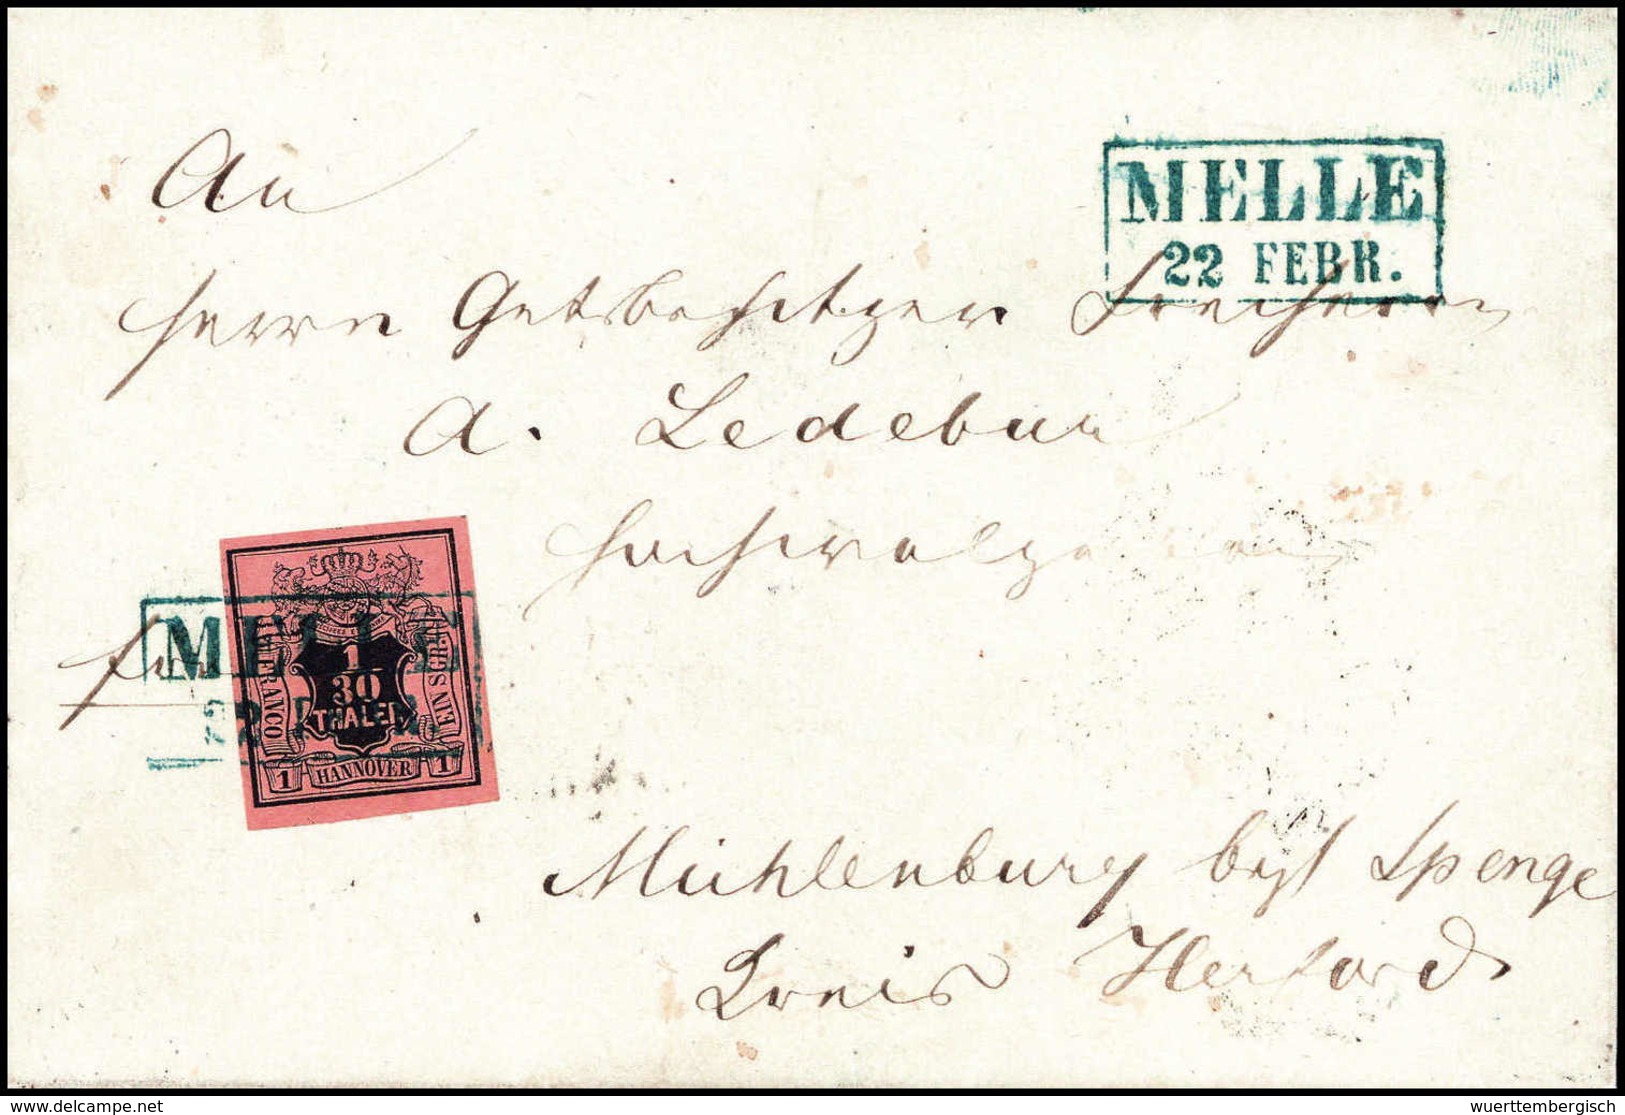 MELLE
22 FEBR.
An
Herrn Gutsbesitzer Freiherrn
v. Ledebur
Hochwolgeboren
MELLE
22 FEBR.
franco
FRANCO
1/30
THALER
EIN SGR.
1 HANNOVER 1
Mühlenburg bei Spenge
Kreis Herford
delcampe.net
wuerttembergisch